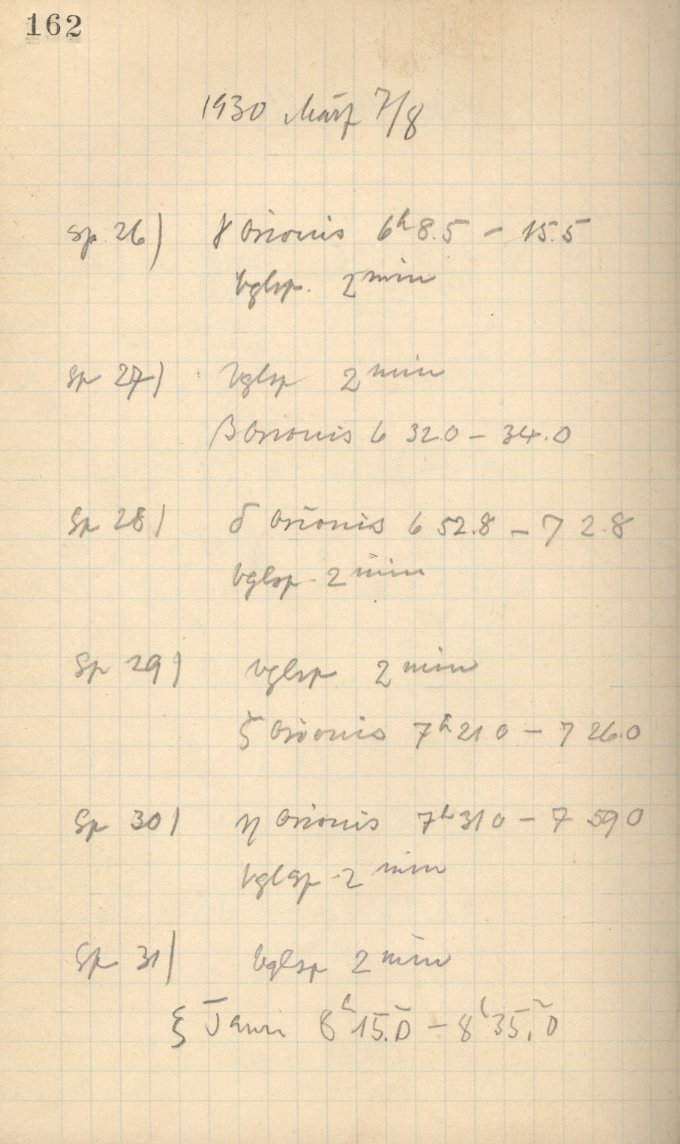 162
1930 März 7/8
Sp 26) γ Orionis 6h 8.5 – 15.5
Vglsp. 2 min
Sp 27) Vglsp 2 min
β Orionis 6 32.0 – 34.0
Sp 28) δ Orionis 6 52.8 – 7 2.8
Vglsp. 2 min
Sp 29) Vglsp 2 min
ζ Orionis 7h 21 0 – 7 26.0
Sp 30) η Orionis 7h 31 0 – 7 59 0
Vglsp. 2 min
Sp 31) Vglsp 2 min
ξ Tauri 8h 15.0 – 8h 35.0